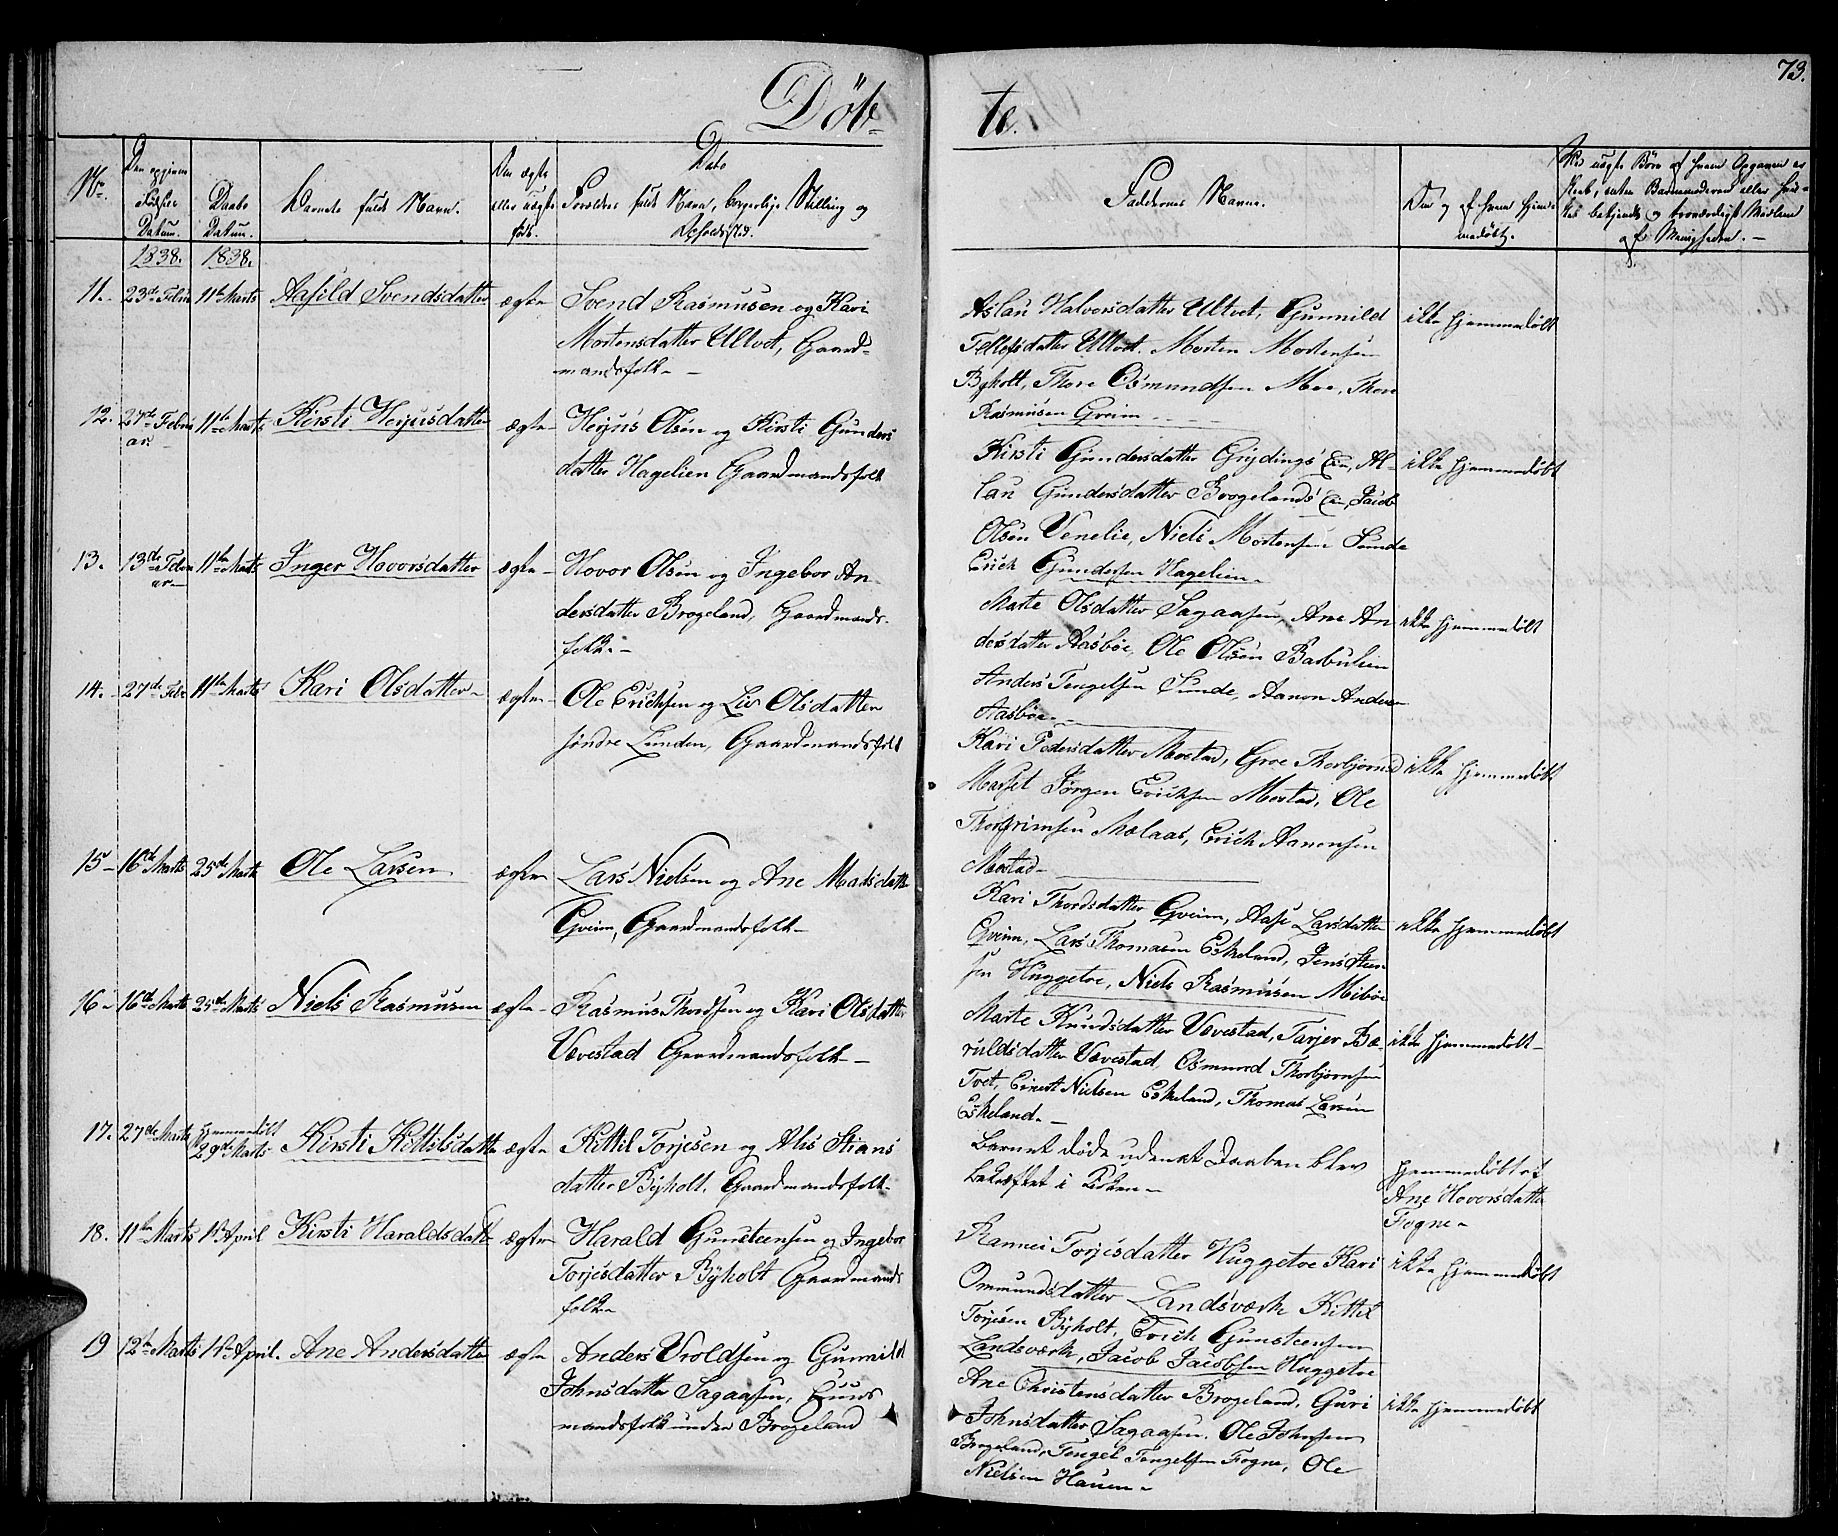 73.
Döb-
te.
No
Den opgivne
Fødsels
Datum.
Daabs
Datum.
Barnets fulde Navn.
Om ægte
eller uægte
født.
Dato
Forældres fulde Navn, borgerlige Stilling og
Opholdsted.
Faddernes Navne.
Om og af hvem hjemmedøbt.
1838.
1838.
11.
23de Febru
11te Marts
Aasild Svendsdatter
ægte
Svend Rasmusen og Kari
Mortensdatter Ulltvet, Gaard-
mandsfolk
Aslau Halvorsdatter Ulltvet, Gunnild
Tellefsdatter Ulltvet. Morten Mortensen
Byholt, Thore Osmundsen Moe, Thor
Rasmusen Gveim
ikke hjemmedøbt
12.
27de Febru
ar
11te Marts
Kirsti Herjusdatter
ægte
Herjus Olsen og Kirsti Gunders
datter Hagelien Gaardmandsfolk
Kirsti Gundersdatter Grydings Ex, As-
lau Gundersdatter Brogelands Ex, Jacob
Olsen Venelie, Niels Mortensen Sunde
Erich Gundersen Hagelien
ikke hjemmedøbt
13.
13de Febru
ar
11te Marts
Inger Hovorsdatter
ægte
Hovor Olsen og Ingebor An-
dersdatter Brogeland, Gaardmands-
folk
Marte Olsdatter Sagaasen, Ane An
dersdatter Aasbøe, Ole Olsen Barbulien
Anders Tengelsen Sunde, Aanon Anders
Aasbøe
ikke hjemmedøbt
14.
27de Febr
11te Marts
Kari Olsdatter
ægte
Ole Erichsen og Liv Olsdatter
søndre Lunden, Gaardmandsfolk
Kari Pedersdatter Mostad, Groe Thorbjørnsd
Masset Jørgen Erichsen Mostad, Ole
Thorgrimsen Mælaas, Erich Aanonsen
Mostad
ikke hjemmedøbt
15
16de Marts
25de Marts
Ole Larsen
ægte
Lars Nielsen og Ane Madsdatt
Gveim, Gaardmandsfolk
Kari Thordsdatter Gveim, Aase Larsdatter
Gveim, Lars Thomasen Eskeland, Jens Steen
sen Huggetve, Niels Rasmusen Mibøe
ikke hjemmedøbt
16
16de Marts
25de Marts
Niels Rasmusen
ægte
Rasmus Thordsen og Kari Olsdatter
Vævestad Gaardmandsfolk
Marte Knudsdatter Vævestad, Tarjer Bæ-
ruldsdatter Vævestad, Osmund Thorbjørnsen
Tvet, Ernst Nielsen Eskeland, Thomas Larsen
Eskeland
ikke hjemmedøbt
17.
27de Marts
hjemmedøbt
29de Marts
Kirsti Kittilsdatte
ægte
Kittil Torjesen og Alis Stians
datter Byholt, Gaardmandsfolk
Barnet døde uden at Daaben blev
bekræftet i Kirken
hjemmedøbt af
Ane Hovorsdatter
Fogne
18.
11te Marts
1st April
Kirsti Haraldsdatt
ægte
Harald Gunsteensen og Ingebor
Torjesdatter Byholt Gaardmands
folk
Rannei Torjesdatter Huggetve Kari
Ommundsdatter Landsværk Kittel
Torjesen Byholt, Erich Gunsteensen
Landsværk, Jacob Jacobsen Huggetve
ikke hjemmedøbt
19
12te Marts
1ste April.
Ane Andersdatter
ægte
Anders Vroldsen og Gunnild
Johnsdatter Sagaasen, Huus
mandsfolk under Brogeland
Ane Christensdatter Brogeland, Guri
Johnsdatter Sagaasen. Ole Johnsen
Brogeland, Tengel Tengelsen Fogne, Ole
Nielsen Hauen
ikke hjemmedøbt